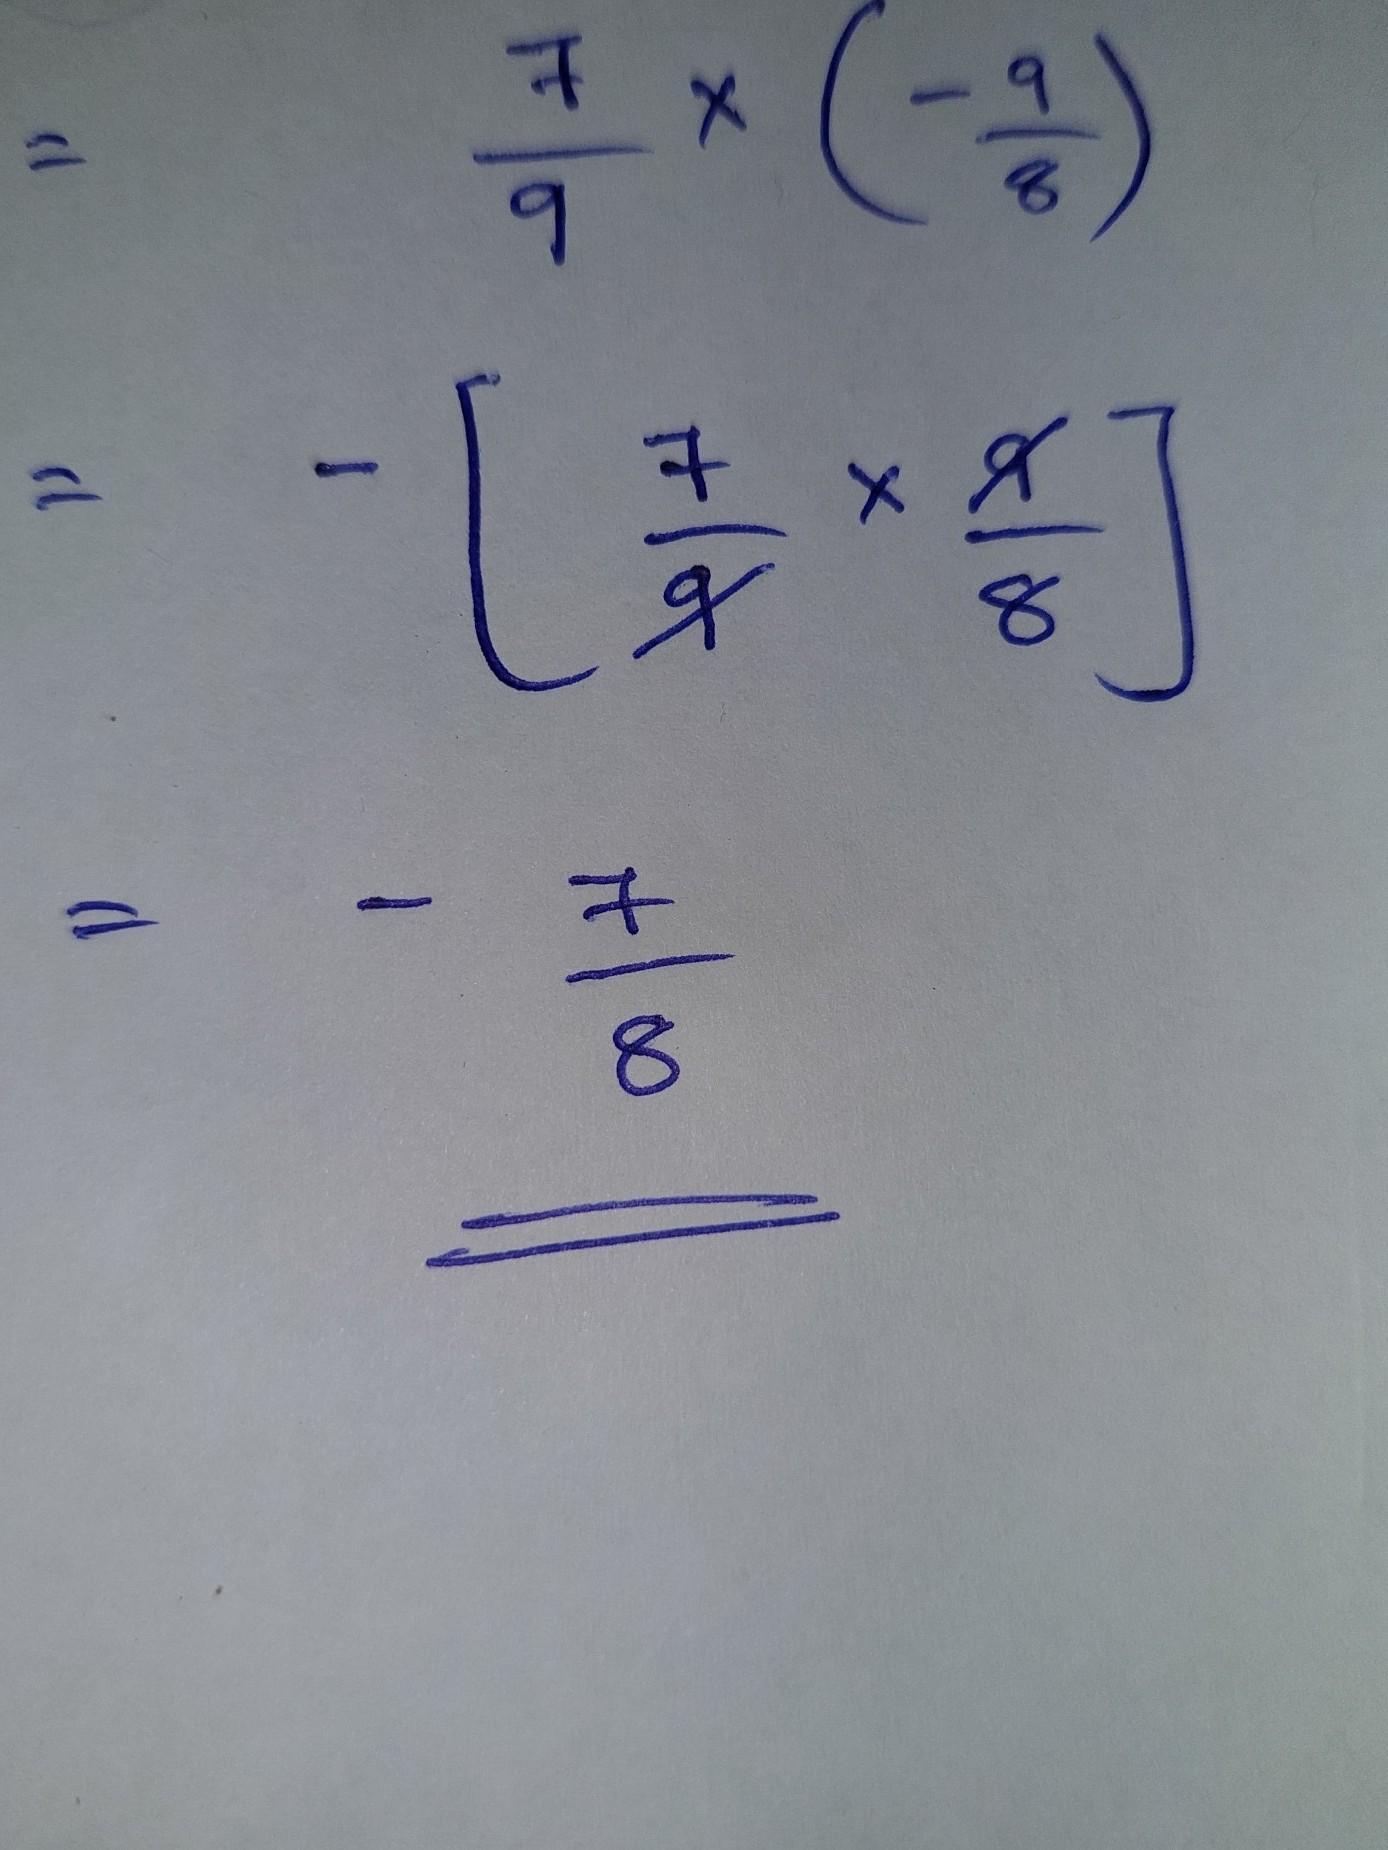 = 7/9 × (- 9/8)
= - [ 7/9 × 9/8 ]
= - 7/8